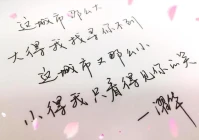 这城市那么大
大得我找寻你不到
这城市又那么小
小得我只看得见你的笑
一